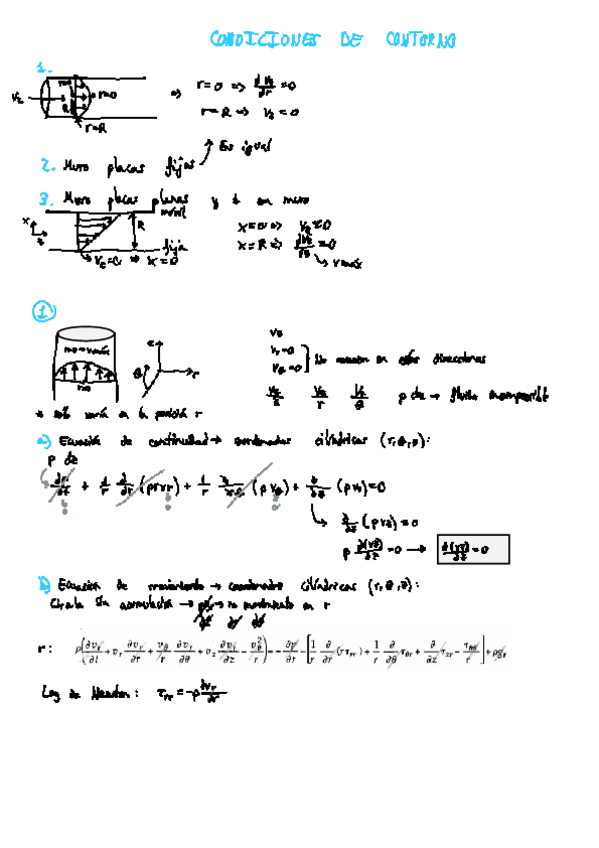 CONDICIONES DE CONTORNO
1.
r=0 => dVz/dr = 0
r=R => Vz = 0
r=0
r=R
Es igual
2. Muro placas fijas
3. Muro placas planas y t en muro
móvil
x=0 => Vz=0
R
fija
Vz=0 => x=0
1
Vz
Vr=0
Vθ=0
No movimiento en otras direcciones
ρ cte → fluido incompresible
* solo varía en la posición r
a) Ecuación de continuidad → coordenadas cilíndricas (r,θ,z):
ρ cte
∂ρ/∂t + 1/r ∂/∂r (ρrvr) + 1/r ∂/∂θ (ρvθ) + ∂/∂z (ρvz)=0
∂/∂z (ρvz)=0
ρ ∂(vz)/∂z =0 → ∂(vz)/∂z = 0
b) Ecuación de movimiento → coordenadas cilíndricas (r,θ,z):
Circula sin acumulación → no movimiento en r
r: ρ(∂vr/∂t + vr ∂vr/∂r + vθ/r ∂vr/∂θ + vz ∂vr/∂z − vθ²/r) = −∂p/∂r − [1/r ∂/∂r (rτrr) + 1/r ∂/∂θ τθr + ∂/∂z τzr − τθθ/r] + ρgr
Ley de Newton: τrr = −μ ∂vr/∂r